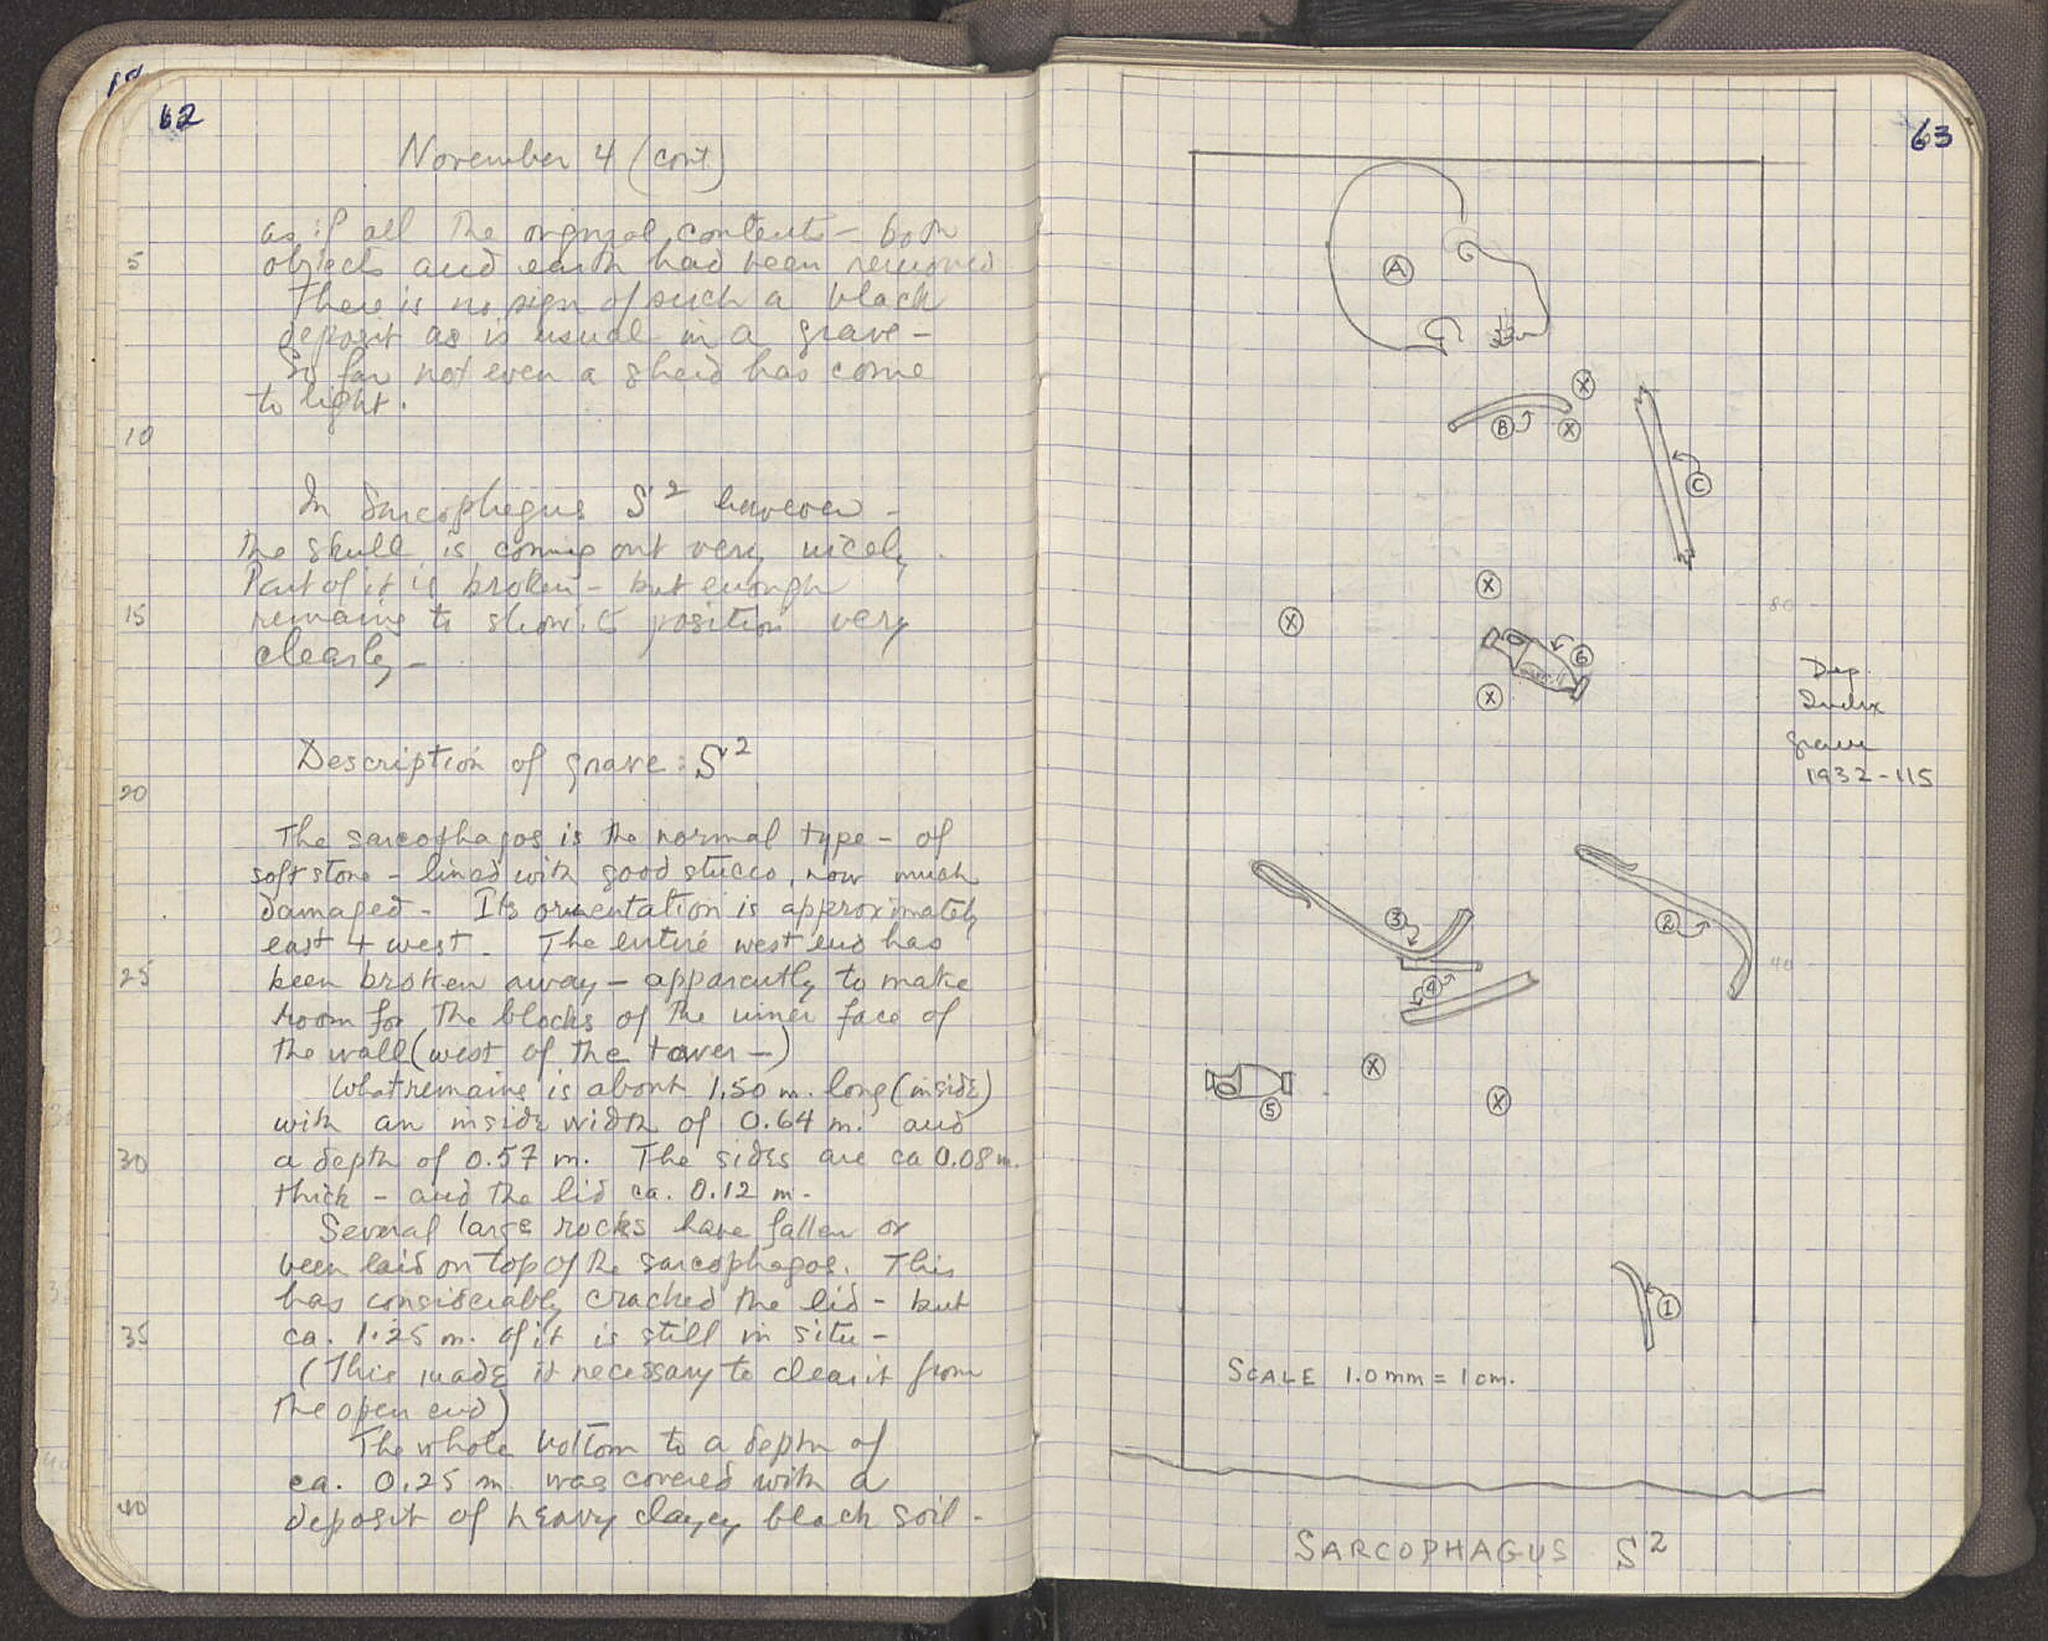 62
November 4 (cont)
as if all the original contents - both
5
objects and earth had been removed
There is no sign of such a black
deposit as is usual in a grave -
So far not even a sherd has come
to light.
10
In Sarcophagus S² however -
the skull is coming out very nicely.
Part of it is broken - but enough
15
remains to show its position very
clearly -
Description of grave: S²
20
The sarcophagos is the normal type - of
soft stone - lined with good stucco, now much
damaged - Its orientation is approximately
east + west. The entire west end has
25
been broken away - apparently to make
room for the blocks of the inner face of
the wall (west of the tower -)
What remains is about 1.50 m. long (inside)
with an inside width of 0.64 m. and
30
a depth of 0.57 m. The sides are ca 0.08 m.
thick - and the lid ca. 0.12 m -
Several large rocks have fallen or
been laid on top of the sarcophagos. This
has considerably cracked the lid - but
35
ca. 1.25 m. of it is still in situ -
(This made it necessary to clear it from
the open end)
The whole bottom to a depth of
ca. 0.25 m. was covered with a
40
deposit of heavy clayey black soil -
63
A
X
B
X
C
X
80
X
6
X
Dep.
Index
grave
1932-115
3
2
4
40
X
5
X
1
SCALE 1.0 mm = 1 cm.
SARCOPHAGUS S²